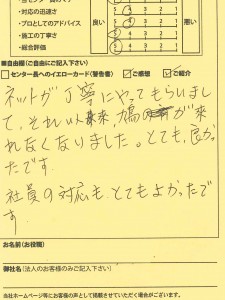 ・対応の迅速さ 5 4 3 2 1
・プロとしてのアドバイス 良い 5 4 3 2 1 悪い
・施工の丁寧さ 5 4 3 2 1
・総合評価 5 4 3 2 1
■自由欄（ご自由にご記入下さい）
センター長へのイエローカード（警告書） ご感想 ご紹介
ネットが丁寧にやってもらいまし
て、それい以来、鳩の が来
れなくなりました。とても、良かっ
たです。
社員の対応も、とてもよかったで
す
お名前（お役職）
御社名（法人のお客様のみご記入下さい）
当社ホームページ等にお客様の声として掲載させていただく場合がございます。